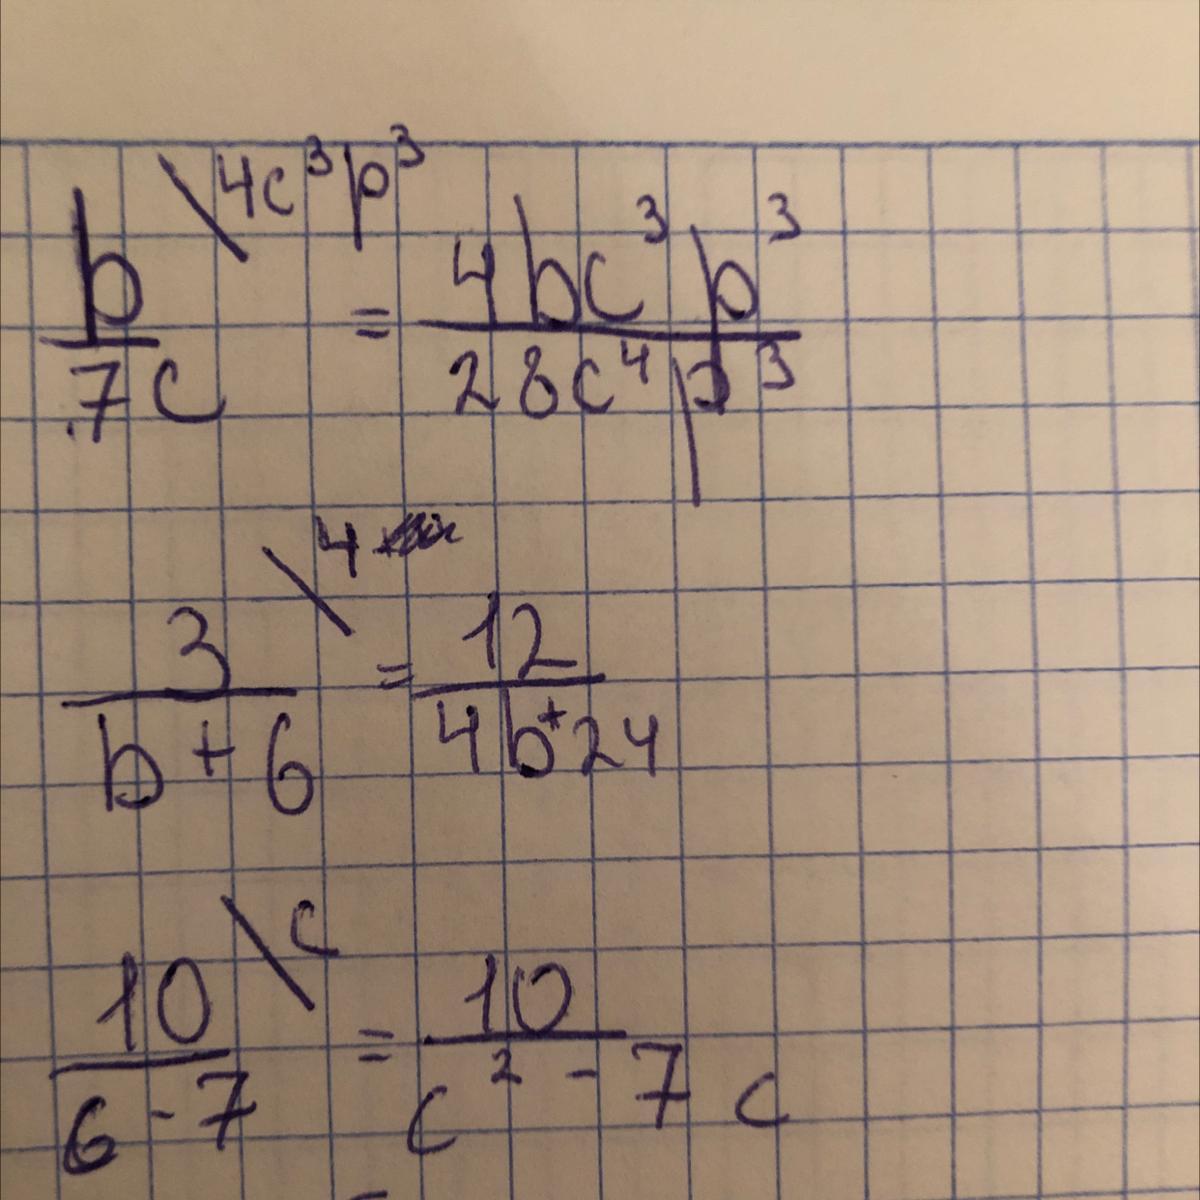 b/7c \4c³p³ = 4bc³p³/28c⁴p³
3/b+6 \4 = 12/4b+24
10/6-7 \c = 10/c²-7c